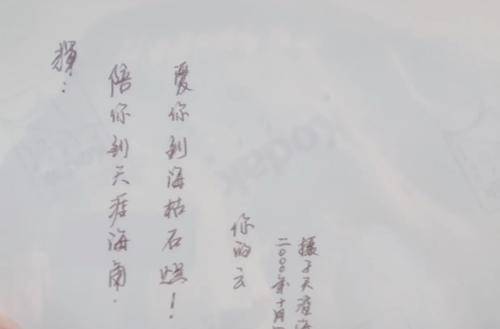 陪你到天涯海角.
爱你到海枯石
你的云
摄于天涯海
二〇〇〇年十月